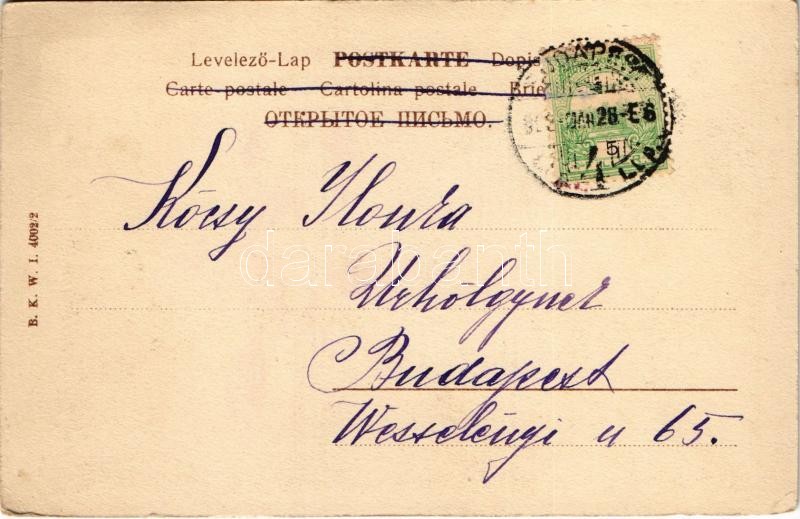 Levelező-Lap POSTKARTE Dopis
Carte postale Cartolina postale Brie
ОТКРЫТОЕ ПИСЬМО.
BUDAPEST
28-E6
5
Kócsy Ilonka
Urhölgynek
Budapest
Wesselényi u 65.
B. K. W. I. 4002/2
darabanth